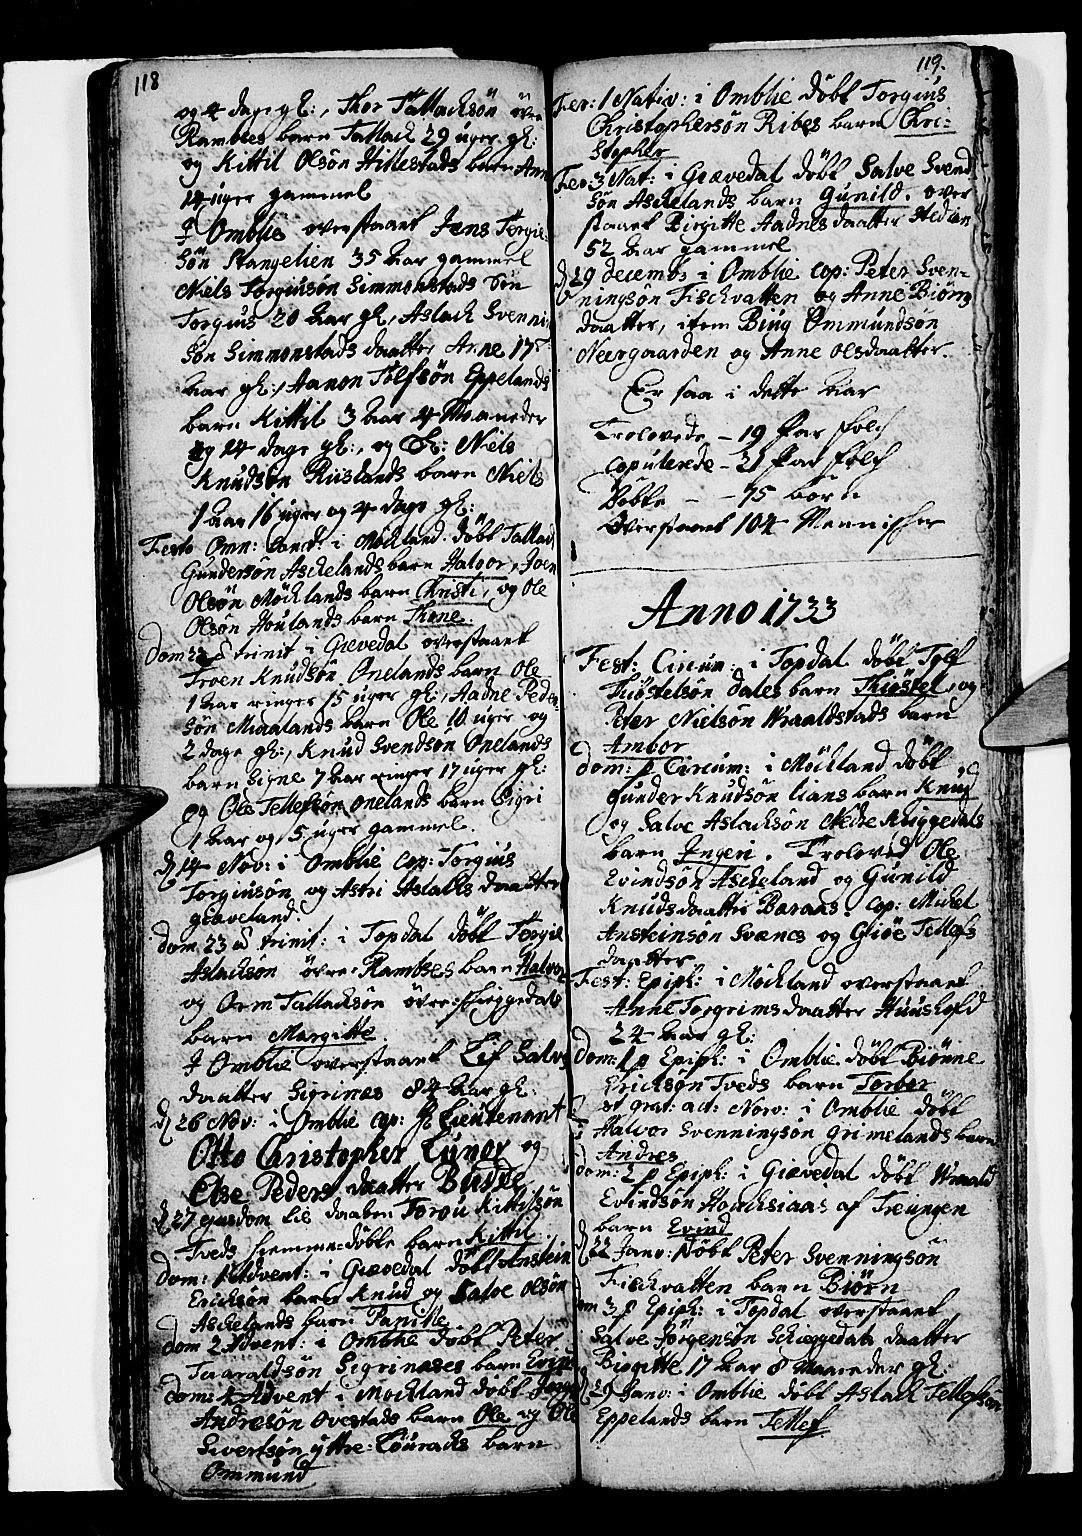 118
og 4 dage gl:, Thor Tallacksøn øvre
Rambses barn Tallack 29 uger gl:
og Kittil Olsøn Hillestads barn Anne
14 uger gammel
J Omblie overstaaet Jens Tergie-
søn Stangelien 35 aar gammel
Niels Torgiusøn Simmonstads Søn
Torgius 20 aar gl:, Aslach Svenning
søn Simmonstads daatter Anne 17
aar gl:, Aanon Tolfsøn Eppelands
barn Kittil 3 aar 4 Maaneder
og 14 dage gl:, og Niels
Knudsøn Riislands barn Niels
1 aar 16 uger og 4 dage gl:
Festo Omn: Sanct: i Mockland døbt Tallack
Gundersøn Askelands barn Halvor, Joen
Olsøn Möcklands barn Christi, og Ole
Olsøn Houlands barn Thone.
Dom 22 à trinit i Giævedal overstaaet
Troen Knudsøn Onelands barn Ole
1 aar ringer 15 uger gl:, Aadne Peder
søn Miaalands barn Ole 10 uger og
2 dage gl:, Knud Svendsøn Onelands
barn Signe 7 aar ringer 17 uger gl:
og Ole Tellefsøn Onelands barn Sigri
1 aar og 5 uger gammel.
d 14 Nov: i Omblie cop: Torgius
Torgiusøn og Astri Aslaks daatter
græveland.
Dom 23 à trinit: i Topdal døbt Tergie
Aslacksøn øvre Rambses barn Halvor
og Orm Tallacksøn øvre: skieggedals
barn Margitte
J Omblie overstaaet Lif Salves
daatter Sigrinæs 84 aar gl:
d 26 Nov: i Omblie cop: Lieutenant
Otto Christopher Luno og
Else Peders daatter Budde
d 27 ejusdem lie daaben Torou Kittilsøn
Tveds hiemme-døbte barn Kittil
Dom: 1 Advent: i Giævedal døbt Anstein
Ericksøn barn Knud og Salve Olsøn
Askelands barn Panille
Dom 2 Advent: i Omblie døbt Peter
Taaraldsøn Sigrinæses barn
Dom: 4 Advent i Mockland døbt
Andresøn Ovestads barn Ole og Ole
Sivertsøn yttre: Lauraks barn
Ommund
119.
Fer: 1 Nativ: i Omblie døbt Torgius
Christophersøn Ribes barn Chri-
stopher
Fer: 3 Nat: i Giævedal døbt Salve Svend
søn Askelands barn Gunild. over
staaet Birgitte Aadnes daatter Hedlen
52 aar gammel
d 29 decembr i Omblie cop: Peter Sven-
ningsøn Fischvatten og Anne Biørns
daatter, item Biug Ommundsøn
Neergaarden og Anne Olsdaatter.
Er saa i dette aar
Trolovede – 19 Par folch
copulerede – 21 Par folch
Døbte – – 75 børn
Overstaaet 104 Mennischer
Anno 1733
Fest: Circum: i Topdal døbt Tolf
Thiøstelsøn dales barn Thiøstel, og
Peter Nielsøn Wraaldstads barn
Ambor
Dom: p Circum: i Möckland døbt
Gunder Knudsøn Lians barn Knud
og Salve Aslacksøn Nedre Kniggedals
barn Jngeri. Troloved Ole
Evindsøn Askeland og Gunild
Knudsdaatter Baraas. cop: Michel
Ansteinsøn Svænes og Gioe Tellefs
daatter
Fest: Epiph: i Möckland overstaaet
Anne Torgrims daatter Huushold
24 aar gl:
Dom: 1 p Epiph: i Omblie døbt Biønne
Ericksøn Tveds barn Torbor
et grat: act: Norv: i Omblie døbt
Halvor Svenningsøn Grimelands barn
Andres
Dom: 2 p Epiph: i Giævedal døbt Wraald
Evindsøn Honcksiaas af Treungen
barn Evind
d 22 Janv: døbt Peter Svenningsøn
Fischvatten barn Biørn
Dom 3 p Epiph: i Topdal overstaaet
Salve Jørgensøn Skieggedals daatter
Birgitte 17 aar 8 Maaneder gl:
d 29 Janv: i Omblie døbt Aslach Tellefsøn
Eppelands barn Tellef.